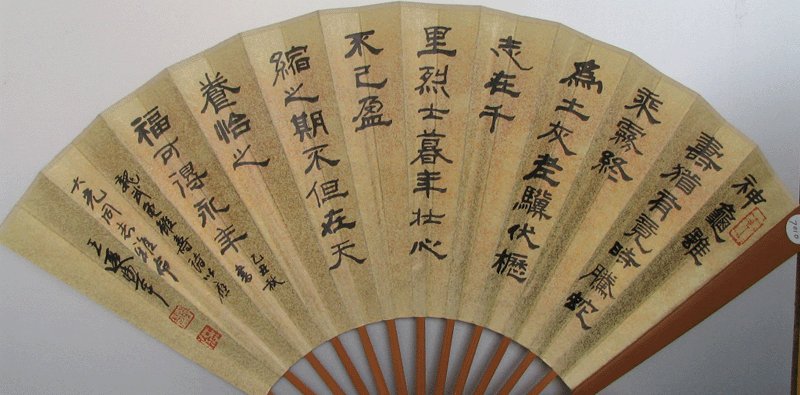 神龜雖
壽猶有竟時騰蛇
乘霧終
爲土灰老驥伏櫪
志在千
里烈士暮年壯心
不已盈
縮之期不但在天
養怡之
福可得永年
乙丑秋
書
魏武龜雖壽詩以應
大光同志雅命
王遐舉